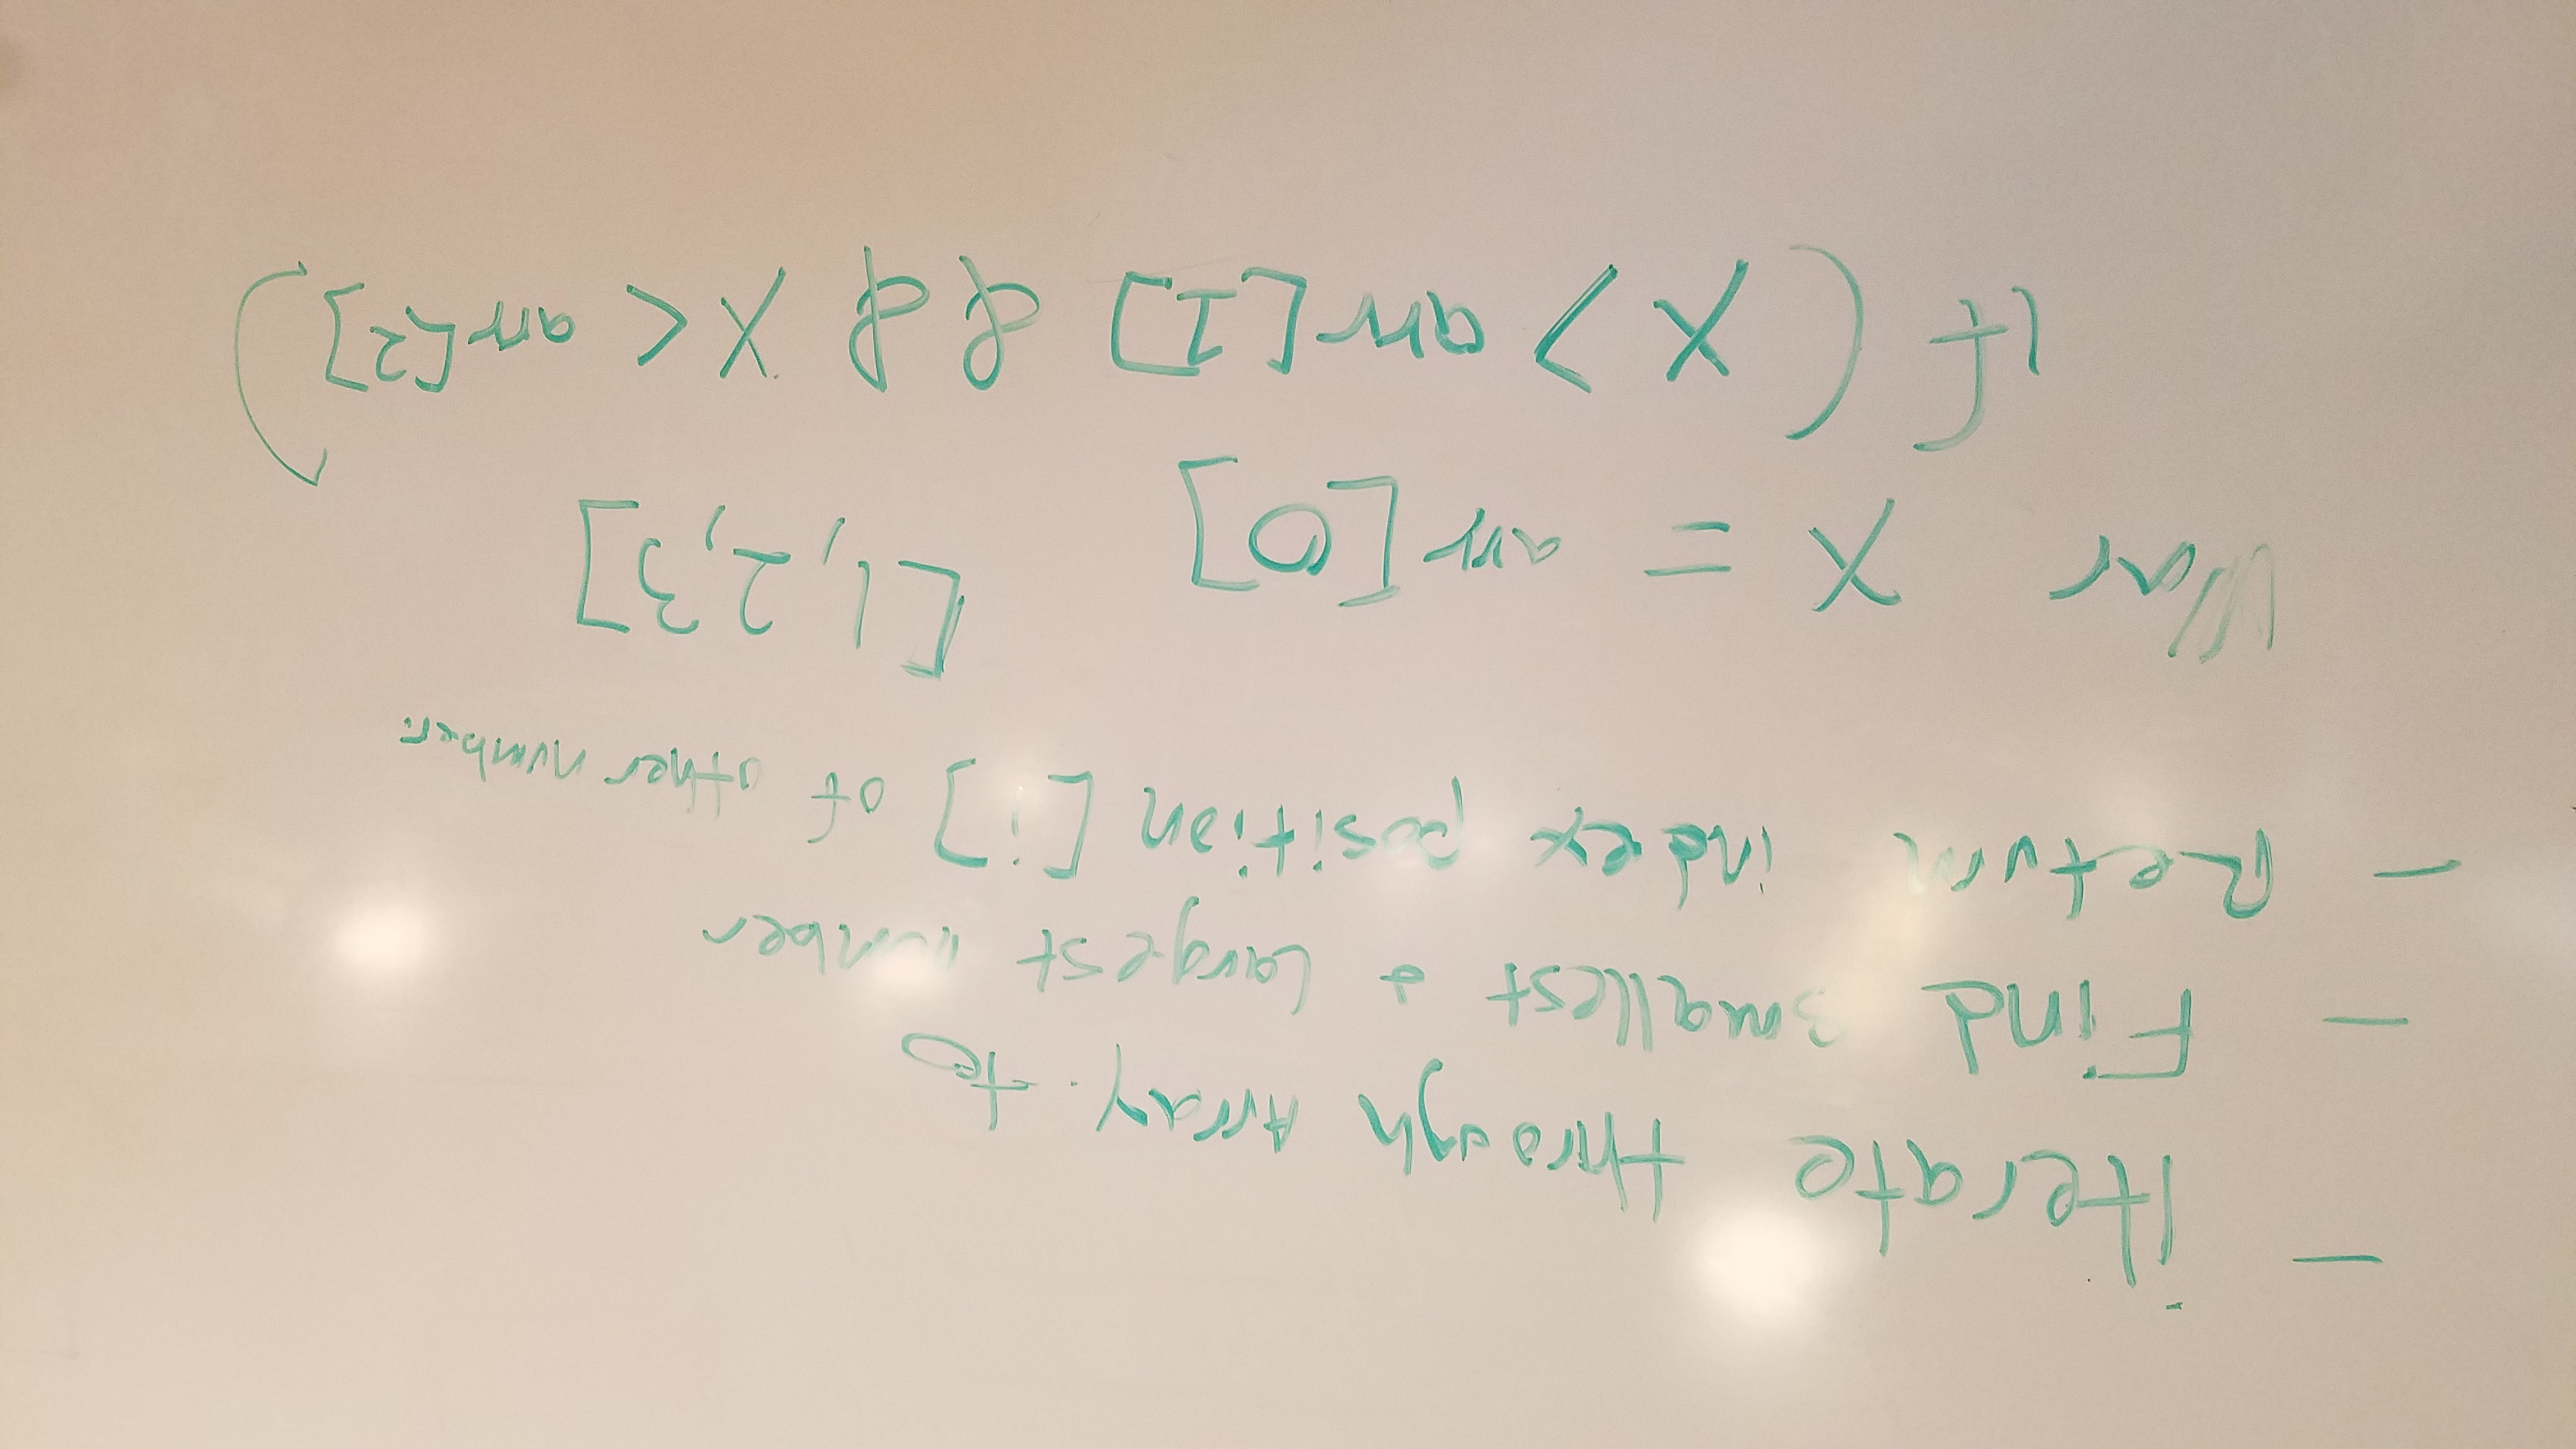 - iterate through Array. to
- Find smallest & largest number
- Return index position [i] of other number.
Var X = arr[0] [1,2,3]
if (X > arr[1] && X < arr[2])